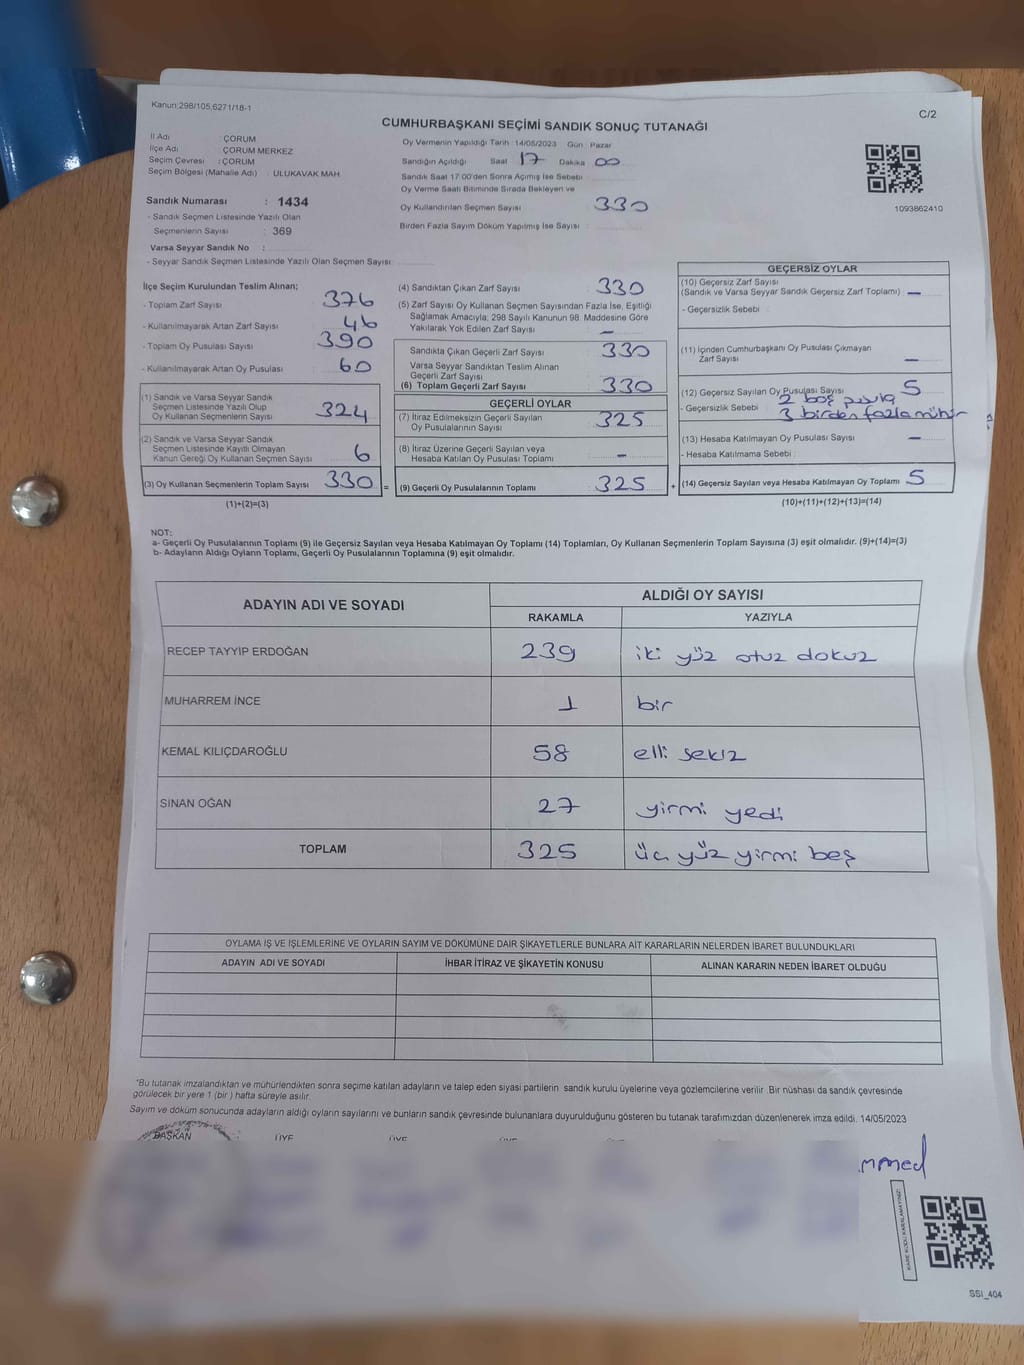 Kanun;298/105,6271/18-1
C/2
CUMHURBAŞKANI SEÇİMİ SANDIK SONUÇ TUTANAĞI
İl Adı : ÇORUM
İlçe Adı : ÇORUM MERKEZ
Seçim Çevresi : ÇORUM
Seçim Bölgesi (Mahalle Adı) : ULUKAVAK MAH.
Sandık Numarası : 1434
- Sandık Seçmen Listesinde Yazılı Olan
Seçmenlerin Sayısı : 369
Varsa Seyyar Sandık No :
- Seyyar Sandık Seçmen Listesinde Yazılı Olan Seçmen Sayısı:
Oy Vermenin Yapıldığı Tarih :14/05/2023 Gün : Pazar
Sandığın Açıldığı Saat 17 Dakika 00
Sandık Saat 17:00'den Sonra Açımış İse Sebebi
Oy Verme Saati Bitiminde Sırada Bekleyen ve
Oy Kullandırılan Seçmen Sayısı 330
Birden Fazla Sayım Döküm Yapılmış İse Sayısı :
1093862410
İlçe Seçim Kurulundan Teslim Alınan;
- Toplam Zarf Sayısı : 376
- Kullanılmayarak Artan Zarf Sayısı : 46
- Toplam Oy Pusulası Sayısı : 390
- Kullanılmayarak Artan Oy Pusulası : 60
(1) Sandık ve Varsa Seyyar Sandık
Seçmen Listesinde Yazılı Olup
Oy Kullanan Seçmenlerin Sayısı : 324
(2) Sandık ve Varsa Seyyar Sandık
Seçmen Listesinde Kayıtlı Olmayan
Kanun Gereği Oy Kullanan Seçmen Sayısı : 6
(3) Oy Kullanan Seçmenlerin Toplam Sayısı : 330 =
(1)+(2)=(3)
(4) Sandıktan Çıkan Zarf Sayısı : 330
(5) Zarf Sayısı Oy Kullanan Seçmen Sayısından Fazla İse, Eşitliği
Sağlamak Amacıyla; 298 Sayılı Kanunun 98. Maddesine Göre
Yakılarak Yok Edilen Zarf Sayısı : –
Sandıkta Çıkan Geçerli Zarf Sayısı : 330
Varsa Seyyar Sandıktan Teslim Alınan
Geçerli Zarf Sayısı :
(6) Toplam Geçerli Zarf Sayısı : 330
GEÇERLİ OYLAR
(7) İtiraz Edilmeksizin Geçerli Sayılan
Oy Pusulalarının Sayısı : 325
(8) İtiraz Üzerine Geçerli Sayılan veya
Hesaba Katılan Oy Pusulası Toplamı : –
(9) Geçerli Oy Pusulalarının Toplamı : 325 +
GEÇERSİZ OYLAR
(10) Geçersiz Zarf Sayısı
(Sandık ve Varsa Seyyar Sandık Geçersiz Zarf Toplamı) : –
- Geçersizlik Sebebi :
(11) İçinden Cumhurbaşkanı Oy Pusulası Çıkmayan
Zarf Sayısı : –
(12) Geçersiz Sayılan Oy Pusulası Sayısı : 5
2 boş pusula
- Geçersizlik Sebebi : 3 birden fazla mühür
(13) Hesaba Katılmayan Oy Pusulası Sayısı : –
- Hesaba Katılmama Sebebi :
(14) Geçersiz Sayılan veya Hesaba Katılmayan Oy Toplamı : 5
(10)+(11)+(12)+(13)=(14)
NOT:
a- Geçerli Oy Pusulalarının Toplamı (9) ile Geçersiz Sayılan veya Hesaba Katılmayan Oy Toplamı (14) Toplamları, Oy Kullanan Seçmenlerin Toplam Sayısına (3) eşit olmalıdır. (9)+(14)=(3)
b- Adayların Aldığı Oyların Toplamı, Geçerli Oy Pusulalarının Toplamına (9) eşit olmalıdır.
ADAYIN ADI VE SOYADI
ALDIĞI OY SAYISI
RAKAMLA YAZIYLA
RECEP TAYYİP ERDOĞAN 239 iki yüz otuz dokuz
MUHARREM İNCE 1 bir
KEMAL KILIÇDAROĞLU 58 elli sekiz
SİNAN OĞAN 27 yirmi yedi
TOPLAM 325 üç yüz yirmi beş
OYLAMA İŞ VE İŞLEMLERİNE VE OYLARIN SAYIM VE DÖKÜMÜNE DAİR ŞİKAYETLERLE BUNLARA AİT KARARLARIN NELERDEN İBARET BULUNDUKLARI
ADAYIN ADI VE SOYADI İHBAR İTİRAZ VE ŞİKAYETİN KONUSU ALINAN KARARIN NEDEN İBARET OLDUĞU
*Bu tutanak imzalandıktan ve mühürlendikten sonra seçime katılan adayların ve talep eden siyasi partilerin sandık kurulu üyelerine veya gözlemcilerine verilir .Bir nüshası da sandık çevresinde
görülecek bir yere 1 (bir ) hafta süreyle asılır.
Sayım ve döküm sonucunda adayların aldığı oyların sayılarını ve bunların sandık çevresinde bulunanlara duyurulduğunu gösteren bu tutanak tarafımızdan düzenlenerek imza edildi. 14/05/2023
BAŞKAN ÜYE ÜYE ÜYE
mmed
KARE KODU KARALAMAYINIZ!
SSİ_404